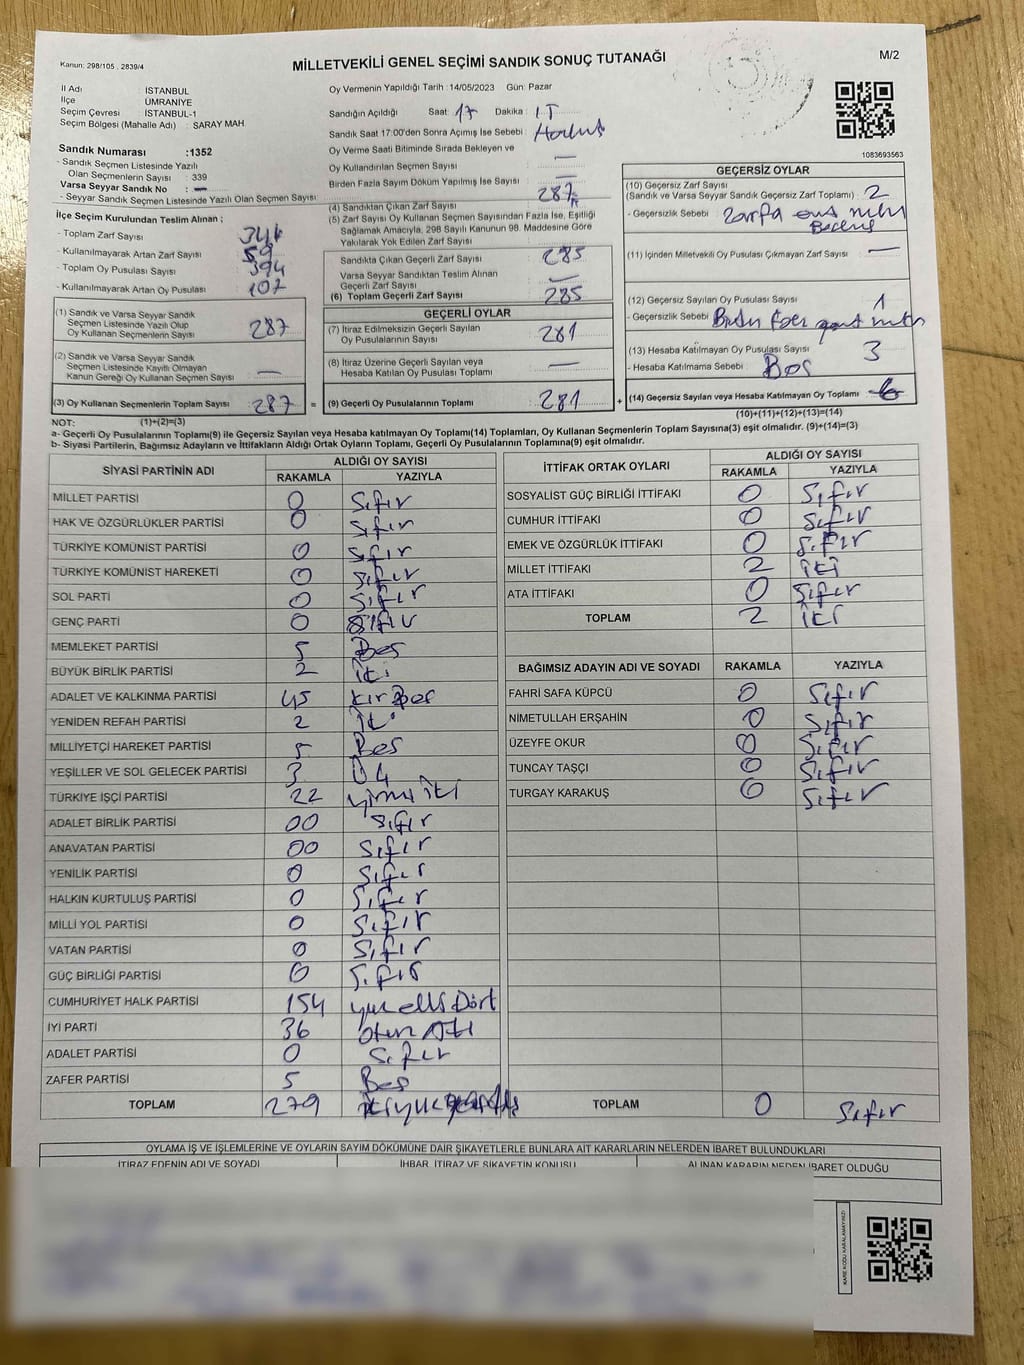 Kanun: 298/105 , 2839/4
MİLLETVEKİLİ GENEL SEÇİMİ SANDIK SONUÇ TUTANAĞI
M/2
İl Adı : İSTANBUL
İlçe : ÜMRANİYE
Seçim Çevresi : İSTANBUL-1
Seçim Bölgesi (Mahalle Adı) : SARAY MAH.
Sandık Numarası :1352
- Sandık Seçmen Listesinde Yazılı
Olan Seçmenlerin Sayısı : 339
Varsa Seyyar Sandık No : —
- Seyyar Sandık Seçmen Listesinde Yazılı Olan Seçmen Sayısı
Oy Vermenin Yapıldığı Tarih : 14/05/2023 Gün: Pazar
Sandığın Açıldığı Saat : 17 Dakika :
Sandık Saat 17:00'den Sonra Açımış İse Sebebi :
Oy Verme Saati Bitiminde Sırada Bekleyen ve
Oy Kullandırılan Seçmen Sayısı : —
Birden Fazla Sayım Döküm Yapılmış İse Sayısı : —
1083693563
İlçe Seçim Kurulundan Teslim Alınan ;
- Toplam Zarf Sayısı :
- Kullanılmayarak Artan Zarf Sayısı : 59
- Toplam Oy Pusulası Sayısı : 394
- Kullanılmayarak Artan Oy Pusulası : 107
(1) Sandık ve Varsa Seyyar Sandık
Seçmen Listesinde Yazılı Olup
Oy Kullanan Seçmenlerin Sayısı : 287
(2) Sandık ve Varsa Seyyar Sandık
Seçmen Listesinde Kayıtlı Olmayan
Kanun Gereği Oy Kullanan Seçmen Sayısı : —
(3) Oy Kullanan Seçmenlerin Toplam Sayısı : 287 =
(4) Sandıktan Çıkan Zarf Sayısı : 287
(5) Zarf Sayısı Oy Kullanan Seçmen Sayısından Fazla İse, Eşitliği
Sağlamak Amacıyla, 298 Sayılı Kanunun 98. Maddesine Göre
Yakılarak Yok Edilen Zarf Sayısı :
Sandıkta Çıkan Geçerli Zarf Sayısı : 285
Varsa Seyyar Sandıktan Teslim Alınan
Geçerli Zarf Sayısı : —
(6) Toplam Geçerli Zarf Sayısı : 285
GEÇERLİ OYLAR
(7) İtiraz Edilmeksizin Geçerli Sayılan
Oy Pusulalarının Sayısı : 281
(8) İtiraz Üzerine Geçerli Sayılan veya
Hesaba Katılan Oy Pusulası Toplamı : —
(9) Geçerli Oy Pusulalarının Toplamı : 281 +
GEÇERSİZ OYLAR
(10) Geçersiz Zarf Sayısı
(Sandık ve Varsa Seyyar Sandık Geçersiz Zarf Toplamı) : 2
- Geçersizlik Sebebi : zarfa
(11) İçinden Milletvekili Oy Pusulası Çıkmayan Zarf Sayısı : —
(12) Geçersiz Sayılan Oy Pusulası Sayısı : 1
- Geçersizlik Sebebi :
(13) Hesaba Katılmayan Oy Pusulası Sayısı : 3
- Hesaba Katılmama Sebebi : Boş
(14) Geçersiz Sayılan veya Hesaba Katılmayan Oy Toplamı : 6
(10)+(11)+(12)+(13)=(14)
NOT: (1)+(2)=(3)
a- Geçerli Oy Pusulalarının Toplamı(9) ile Geçersiz Sayılan veya Hesaba katılmayan Oy Toplamı(14) Toplamları, Oy Kullanan Seçmenlerin Toplam Sayısına(3) eşit olmalıdır. (9)+(14)=(3)
b- Siyasi Partilerin, Bağımsız Adayların ve İttifakların Aldığı Ortak Oyların Toplamı, Geçerli Oy Pusulalarının Toplamına(9) eşit olmalıdır.
SİYASİ PARTİNİN ADI ALDIĞI OY SAYISI
RAKAMLA YAZIYLA
MİLLET PARTİSİ 0 Sıfır
HAK VE ÖZGÜRLÜKLER PARTİSİ 0 Sıfır
TÜRKİYE KOMÜNİST PARTİSİ 0 Sıfır
TÜRKİYE KOMÜNİST HAREKETİ 0 Sıfır
SOL PARTİ 0 Sıfır
GENÇ PARTİ 0 Sıfır
MEMLEKET PARTİSİ 5 Beş
BÜYÜK BİRLİK PARTİSİ 2 İki
ADALET VE KALKINMA PARTİSİ 45
YENİDEN REFAH PARTİSİ 2 İki
MİLLİYETÇİ HAREKET PARTİSİ 5 Beş
YEŞİLLER VE SOL GELECEK PARTİSİ 3 Üç
TÜRKİYE İŞÇİ PARTİSİ 22 yirmi iki
ADALET BİRLİK PARTİSİ 00 Sıfır
ANAVATAN PARTİSİ 00 Sıfır
YENİLİK PARTİSİ 0 Sıfır
HALKIN KURTULUŞ PARTİSİ 0 Sıfır
MİLLİ YOL PARTİSİ 0 Sıfır
VATAN PARTİSİ 0 Sıfır
GÜÇ BİRLİĞİ PARTİSİ 0 Sıfır
CUMHURİYET HALK PARTİSİ 154 yüz elli Dört
İYİ PARTİ 36 otuz Altı
ADALET PARTİSİ 0 Sıfır
ZAFER PARTİSİ 5 Beş
TOPLAM 279
İTTİFAK ORTAK OYLARI ALDIĞI OY SAYISI
RAKAMLA YAZIYLA
SOSYALİST GÜÇ BİRLİĞİ İTTİFAKI 0 Sıfır
CUMHUR İTTİFAKI 0 Sıfır
EMEK VE ÖZGÜRLÜK İTTİFAKI 0 Sıfır
MİLLET İTTİFAKI 2 iki
ATA İTTİFAKI 0 Sıfır
TOPLAM 2 İki
BAĞIMSIZ ADAYIN ADI VE SOYADI RAKAMLA YAZIYLA
FAHRİ SAFA KÜPCÜ 0 Sıfır
NİMETULLAH ERŞAHİN 0 Sıfır
ÜZEYFE OKUR 0 Sıfır
TUNCAY TAŞÇI 0 Sıfır
TURGAY KARAKUŞ 0 Sıfır
TOPLAM 0 Sıfır
OYLAMA İŞ VE İŞLEMLERİNE VE OYLARIN SAYIM DÖKÜMÜNE DAİR ŞİKAYETLERLE BUNLARA AİT KARARLARIN NELERDEN İBARET BULUNDUKLARI
İTİRAZ EDENİN ADI VE SOYADI İHBAR, İTİRAZ VE ŞİKAYETİN KONUSU ALINAN KARARIN NEDEN İBARET OLDUĞU
KARE KODU KARALAMAYINIZ!